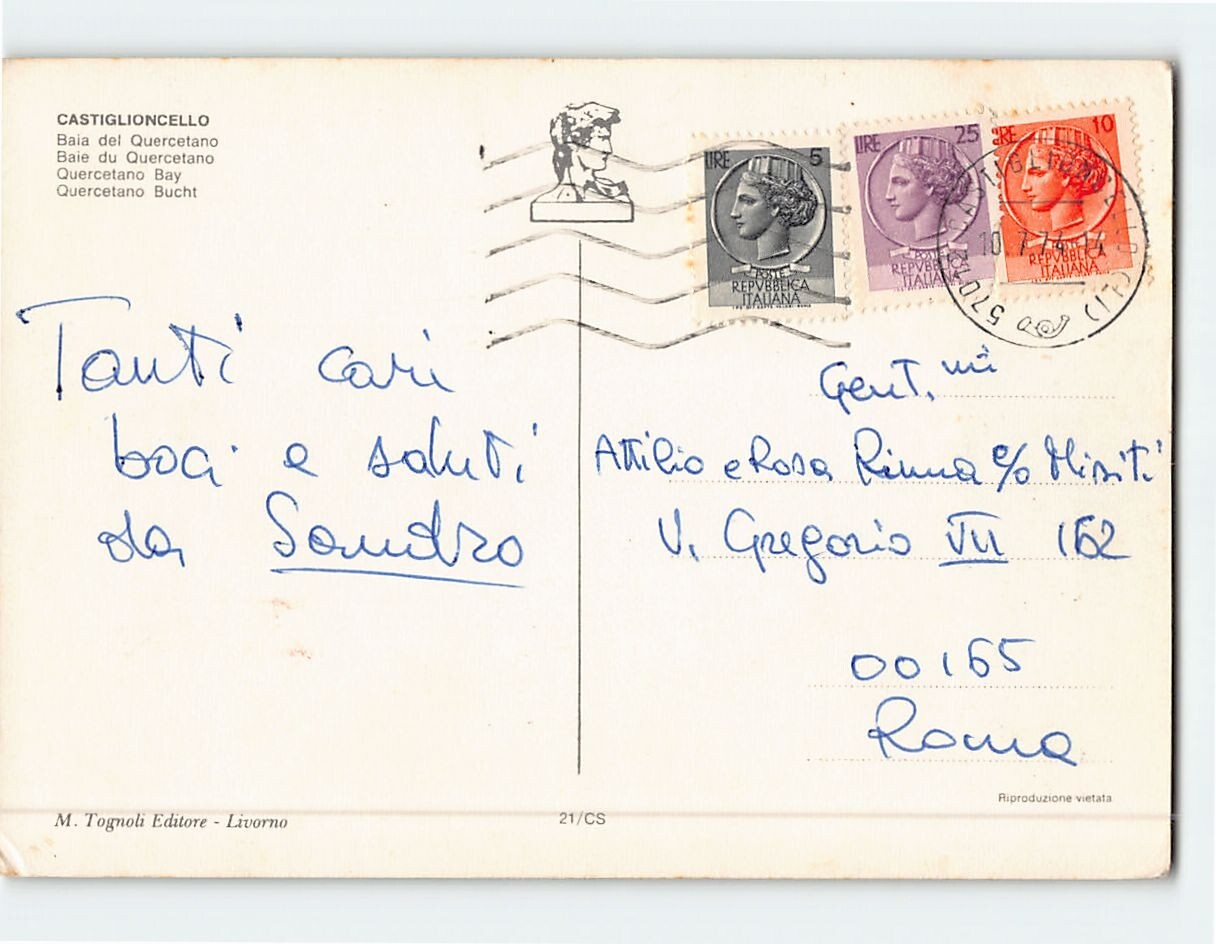 CASTIGLIONCELLO
Baia del Quercetano
Baie du Quercetano
Quercetano Bay
Quercetano Bucht
LIRE 5
POSTE
REPVBBLICA
ITALIANA
LIRE 25
POSTE
REPVBBLICA
ITALIANA
LIRE 10
POSTE
REPVBBLICA
ITALIANA
10.7.74.14
Tanti cari
baci e saluti
da Sandro
Gent.mi
Attilio e Rosa Rinna c/o Misiti
V. Gregorio VII 162
00165
Roma
Riproduzione vietata
M. Tognoli Editore - Livorno
21/CS